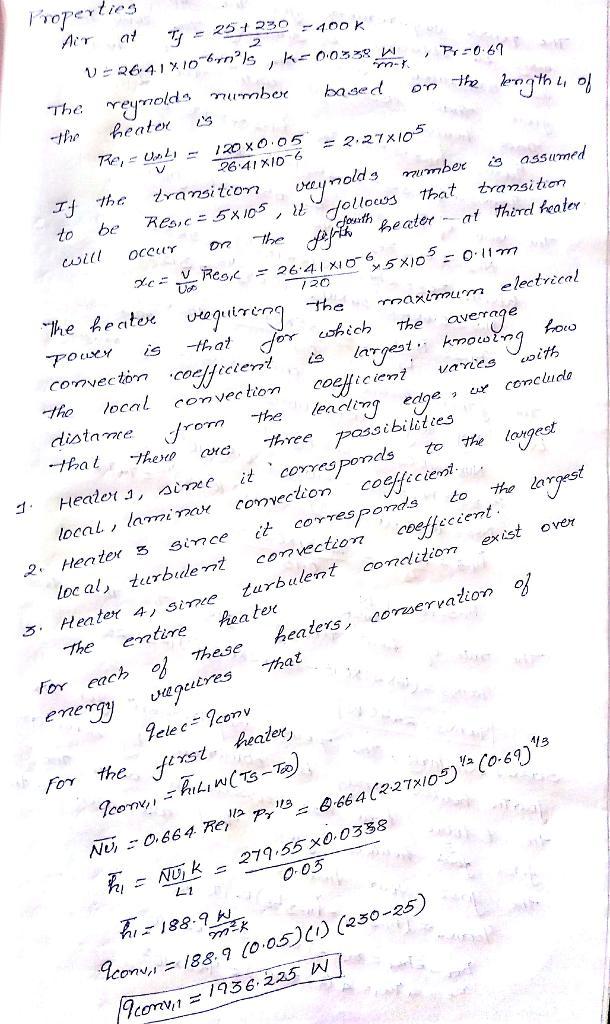 Properties
Air at Tf = 25+230/2 = 400 K
ν = 26.41 x 10^-6 m²/s , k = 0.0338 W/m-k , Pr = 0.69
The reynolds number based on the length L1 of
the heater is
Re1 = U∞L1/ν = 120 x 0.05/26.41 x 10^-6 = 2.27 x 10^5
If the transition reynolds number is assumed
to be Res,c = 5 x 10^5 , it follows that transition
will occur on the fourth heater - at third heater
xc = ν/U∞ Res,c = 26.41 x 10^-6/120 x 5 x 10^5 = 0.11 m
The heater requiring the maximum electrical
power is that for which the average
convection coefficient is largest. knowing how
the local convection coefficient varies with
distance from the leading edge, we conclude
that there are three possibilities
1. Heater 1, since it corresponds to the largest
local, laminar convection coefficient.
2. Heater 3 since it corresponds to the largest
local, turbulent convection coefficient.
3. Heater 4, since turbulent condition exist over
The entire heater
For each of These heaters, conservation of
energy requires that
qelec = qconv
For the first heater,
qconv,1 = h̄1L1W(Ts-T∞)
N̄u1 = 0.664 Re1^1/2 Pr^1/3 = 0.664 (2.27x10^5)^1/2 (0.69)^1/3
h̄1 = N̄u1 k/L1 = 279.55 x 0.0338/0.05
h̄1 = 188.9 W/m²k
qconv,1 = 188.9 (0.05)(1) (230-25)
qconv,1 = 1936.225 W